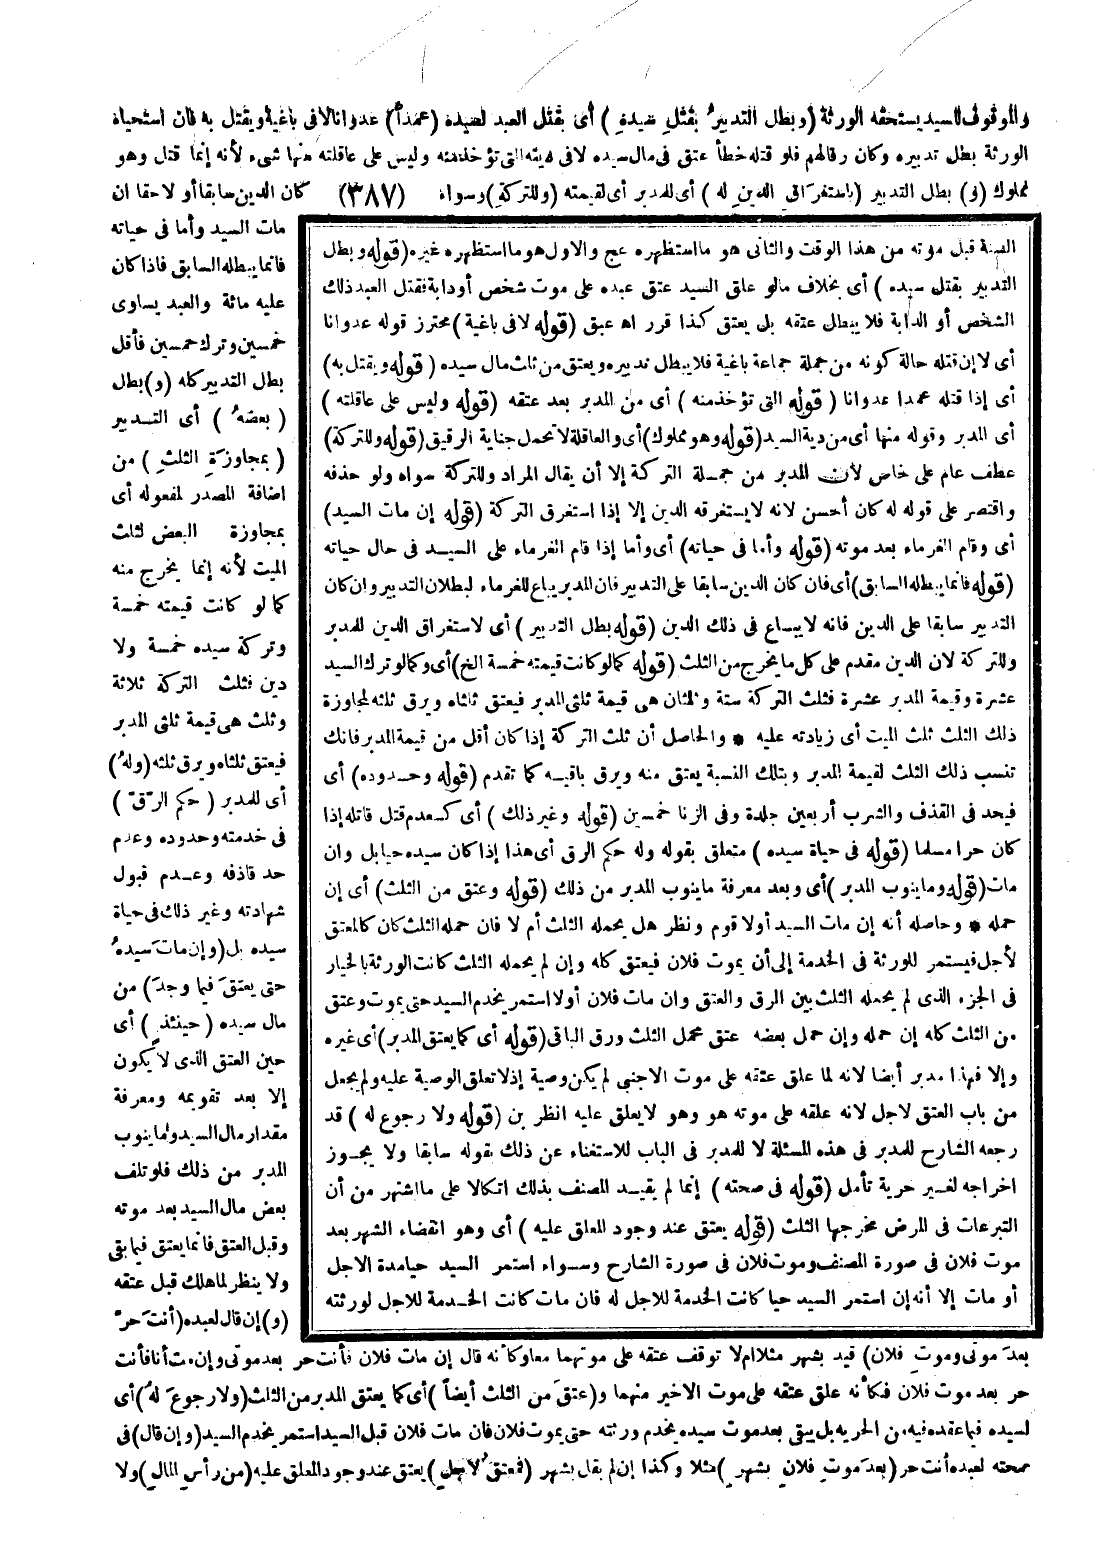 والموقوف للسيد يستحقه الورثة (وبطل التدبيرُ بقتلِ سيدهِ) أى بقتل العبد لسيده (عمداً) عدوانا لا فى باغية ويقتل به فان استحياه
الورثة بطل تدبيره وكان رقا لهم فلو قتله خطأ عتق فى مال سيده لا فى ديته التى تؤخذ منه وليس على عاقلته منها شىء لأنه إنما قتل وهو
مملوك (و) بطل التدبير (باستغراقِ الدينِ له) أى للمدبر أى لقيمته (وللتركةِ) وسواء (٣٨٧) كان الدين سابقا أو لاحقا ان
مات السيد وأما فى حياته
فانما يبطله السابق فاذا كان
عليه مائة والعبد يساوى
خمسين وترك خمسين فأقل
بطل التدبير كله (و) بطل
(بعضهُ) أى التدبير
(بمجاوزةِ الثلثِ) من
اضافة المصدر لمفعوله أى
بمجاوزة البعض لثلث
الميت لأنه إنما يخرج منه
كما لو كانت قيمته خمسة
وتركة سيده خمسة ولا
دين فثلث التركة ثلاثة
وثلث هى قيمة ثلثى المدبر
فيعتق ثلثاه ويرق ثلثه (ولهُ)
أى للمدبر (حكم الرّقّ)
فى خدمته وحدوده وعدم
حد قاذفه وعدم قبول
شهادته وغير ذلك فى حياة
سيده بل (وإن ماتَ سيدهُ
حتى يعتقَ فيما وجدَ) من
مال سيده (حينئذٍ) أى
حين العتق الذى لا يكون
إلا بعد تقويمه ومعرفة
مقدار مال السيد وما ينوب
المدبر من ذلك فلو تلف
بعض مال السيد بعد موته
وقبل العتق فانما يعتق فيما بقى
ولا ينظر لما هلك قبل عتقه
(و) إن قال لعبده (أنتَ حرّ
السنة قبل موته من هذا الوقت والثانى هو ما استظهره عج والاول هو ما استظهره غيره (قوله وبطل
التدبير بقتل سيده) أى بخلاف ما لو علق السيد عتق عبده على موت شخص أو دابة فقتل العبد ذلك
الشخص أو الدابة فلا يبطل عتقه بل يعتق كذا قرر اه عبق (قوله لا فى باغية) محترز قوله عدوانا
أى لا إن قتله حالة كونه من جملة جماعة باغية فلا يبطل تدبيره ويعتق من ثلث مال سيده (قوله ويقتل به)
أى إذا قتله عمدا عدوانا (قوله التى تؤخذ منه) أى من المدبر بعد عتقه (قوله وليس على عاقلته)
أى المدبر وقوله منها أى من دية السيد (قوله وهو مملوك) أى والعاقلة لا تحمل جناية الرقيق (قوله وللتركة)
عطف عام على خاص لأن المدبر من جملة التركة إلا أن يقال المراد وللتركة سواه ولو حذفه
واقتصر على قوله له كان أحسن لانه لا يستغرقه الدين إلا إذا استغرق التركة (قوله إن مات السيد)
أى وقام الغرماء بعد موته (قوله وأما فى حياته) أى وأما إذا قام الغرماء على السيد فى حال حياته
(قوله فانما يبطله السابق) أى فان كان الدين سابقا على التدبير فان المدبر يباع للغرماء لبطلان التدبير وان كان
التدبير سابقا على الدين فانه لا يباع فى ذلك الدين (قوله بطل التدبير) أى لاستغراق الدين للمدبر
وللتركة لان الدين مقدم على كل ما يخرج من الثلث (قوله كما لو كانت قيمته خمسة الخ) أى وكما لو ترك السيد
عشرة وقيمة المدبر عشرة فثلث التركة ستة وثلثان هى قيمة ثلثى المدبر فيعتق ثلثاه ويرق ثلثه لمجاوزة
ذلك الثلث ثلث الميت أى زيادته عليه * والحاصل أن ثلث التركة إذا كان أقل من قيمة المدبر فانك
تنسب ذلك الثلث لقيمة المدبر وبتلك النسبة يعتق منه ويرق باقيه كما تقدم (قوله وحدوده) أى
فيحد فى القذف والشرب أربعين جلدة وفى الزنا خمسين (قوله وغير ذلك) أى كعدم قتل قاتله إذا
كان حرا مسلما (قوله فى حياة سيده) متعلق بقوله وله حكم الرق أى هذا إذا كان سيده حيا بل وان
مات (قوله وما ينوب المدبر) أى وبعد معرفة ما ينوب المدبر من ذلك (قوله وعتق من الثلث) أى إن
حمله * وحاصله أنه إن مات السيد أولا قوم ونظر هل يحمله الثلث أم لا فان حمله الثلث كان كالمعتق
لأجل فيستمر للورثة فى الخدمة إلى أن يموت فلان فيعتق كله وإن لم يحمله الثلث كانت الورثة بالخيار
فى الجزء الذى لم يحمله الثلث بين الرق والعتق وان مات فلان أولا استمر يخدم السيد حتى يموت وعتق
من الثلث كله إن حمله وإن حمل بعضه عتق محمل الثلث ورق الباقى (قوله أى كما يعتق المدبر) أى غيره
وإلا فهذا مدبر أيضا لانه لما علق عتقه على موت الاجنبى لم يكن وصية إذ لا تعلق الوصية عليه ولم يجعل
من باب العتق لاجل لانه علقه على موته هو وهو لا يعلق عليه انظر بن (قوله ولا رجوع له) قد
رجعه الشارح للمدبر فى هذه المسئلة لا للمدبر فى الباب للاستغناء عن ذلك بقوله سابقا ولا يجوز
اخراجه لغير حرية تأمل (قوله فى صحته) إنما لم يقيد المصنف بذلك اتكالا على ما اشتهر من أن
التبرعات فى المرض مخرجها الثلث (قوله يعتق عند وجود المعلق عليه) أى وهو انقضاء الشهر بعد
موت فلان فى صورة المصنف وموت فلان فى صورة الشارح وسواء استمر السيد حيا مدة الاجل
أو مات إلا أنه إن استمر السيد حيا كانت الخدمة للاجل له فان مات كانت الخدمة للاجل لورثته
بعدَ موتى وموتِ فلان) قيد بشهر مثلا أم لا توقف عتقه على موتهما معا وكأنه قال إن مات فلان فأنت حر بعد موتى وإن مت أنا فأنت
حر بعد موت فلان فكأنه علق عتقه على موت الاخير منهما و(عتقَ من الثلث أيضاً) أى كما يعتق المدبر من الثلث (ولا رجوعَ لهُ) أى
لسيده فيما عقده فيه من الحرية بل يبقى بعد موت سيده يخدم ورثته حتى يموت فلان فان مات فلان قبل السيد استمر يخدم السيد (وإن قال) فى
صحته لعبده أنت حر (بعدَ موتِ فلانٍ بشهرٍ) مثلا وكذا إن لم يقل بشهر (فمعتقٌ لأجلٍ) يعتق عند وجود المعلق عليه (من رأسِ المالِ) ولا